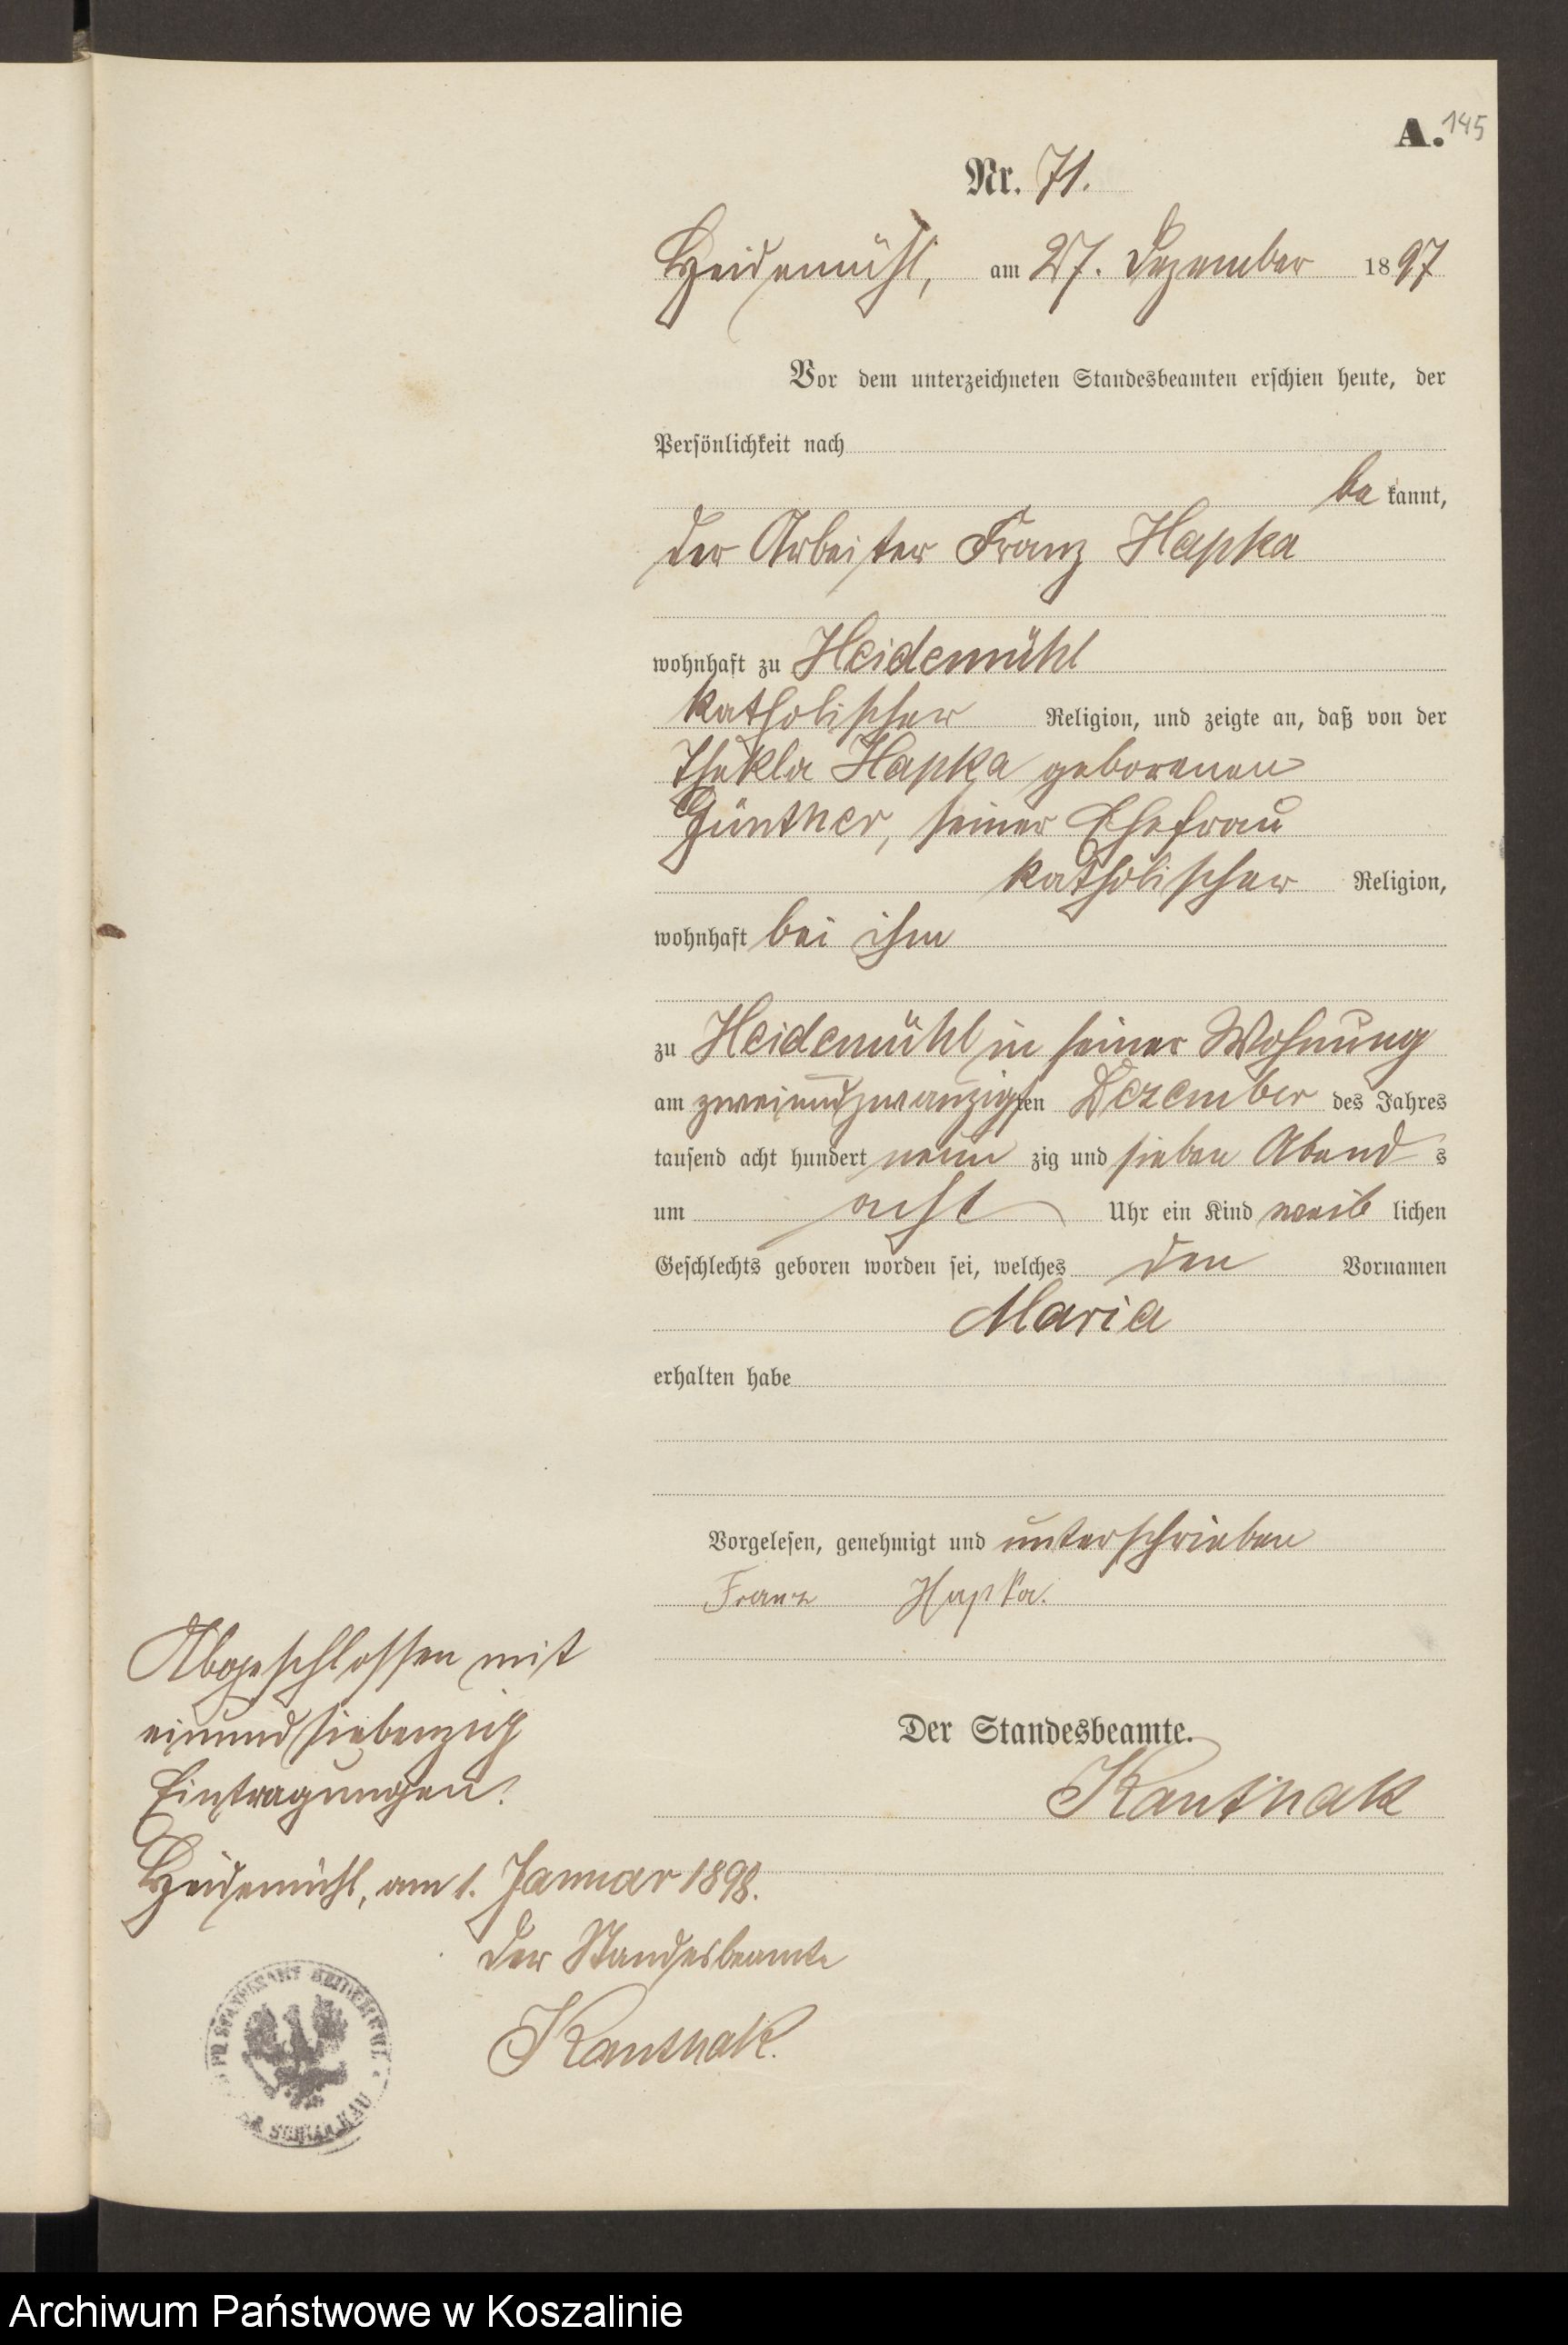 A. 145
Nr. 71.
Heidemühl, am 27. Dezember 1897
Vor dem unterzeichneten Standesbeamten erschien heute, der
Persönlichkeit nach
be kannt,
der Arbeiter Franz Hapka
wohnhaft zu Heidemühl
katholischer Religion, und zeigte an, daß von der
Thekla Hapka geborenen
Günther, seiner Ehefrau
katholischer Religion,
wohnhaft bei ihm
zu Heidemühl in seiner Wohnung
am zweiundzwanzigsten Dezember des Jahres
tausend acht hundert neun zig und sieben Abend s
um acht Uhr ein Kind weib lichen
Geschlechts geboren worden sei, welches den Vornamen
Maria
erhalten habe
Vorgelesen, genehmigt und unterschrieben
Franz Hapka.
Der Standesbeamte.
Kanthak
Abgeschlossen mit
einundsiebenzig
Eintragungen.
Heidemühl, am 1. Januar 1898.
Der Standesbeamte
Kanthak.
STANDESAMT HEIDEMÜHL
Archiwum Państwowe w Koszalinie